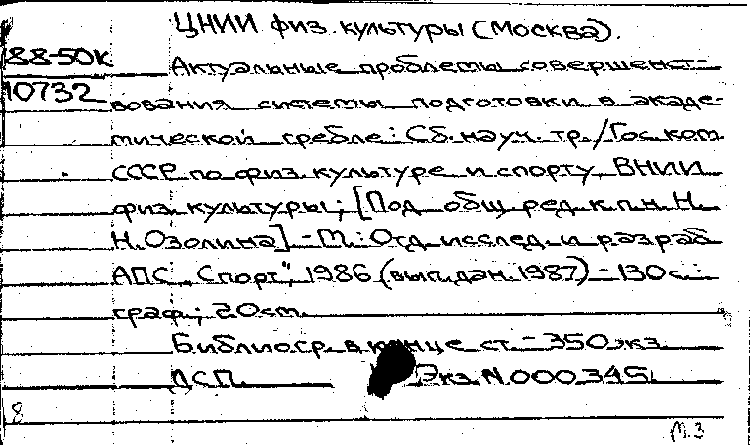 ЦНИИ физ. культуры (Москва).
88-50К
Актуальные проблемы совершенст-
10732
вования системы подготовки в акаде-
мической гребле: Сб. науч. тр. / Гос. ком.
СССР по физ. культуре и спорту, ВНИИ
физ. культуры; [Под общ. ред. к.п.н. Н.
Н. Озолина] - М.: Отд. исслед. и разраб
АПС „Спорт", 1986 (вып. дан. 1987) - 130 с.:
граф.; 20 см.
Библиогр. в конце ст. - 350 экз.
ДСП. Экз. N 000345.
8
М.З